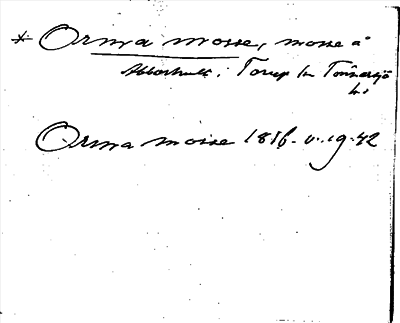 * Orma mosse, mosse å
Abborhult i Torup sn Tönnersjö
h:
Orma mosse 1816. v. 19. 42